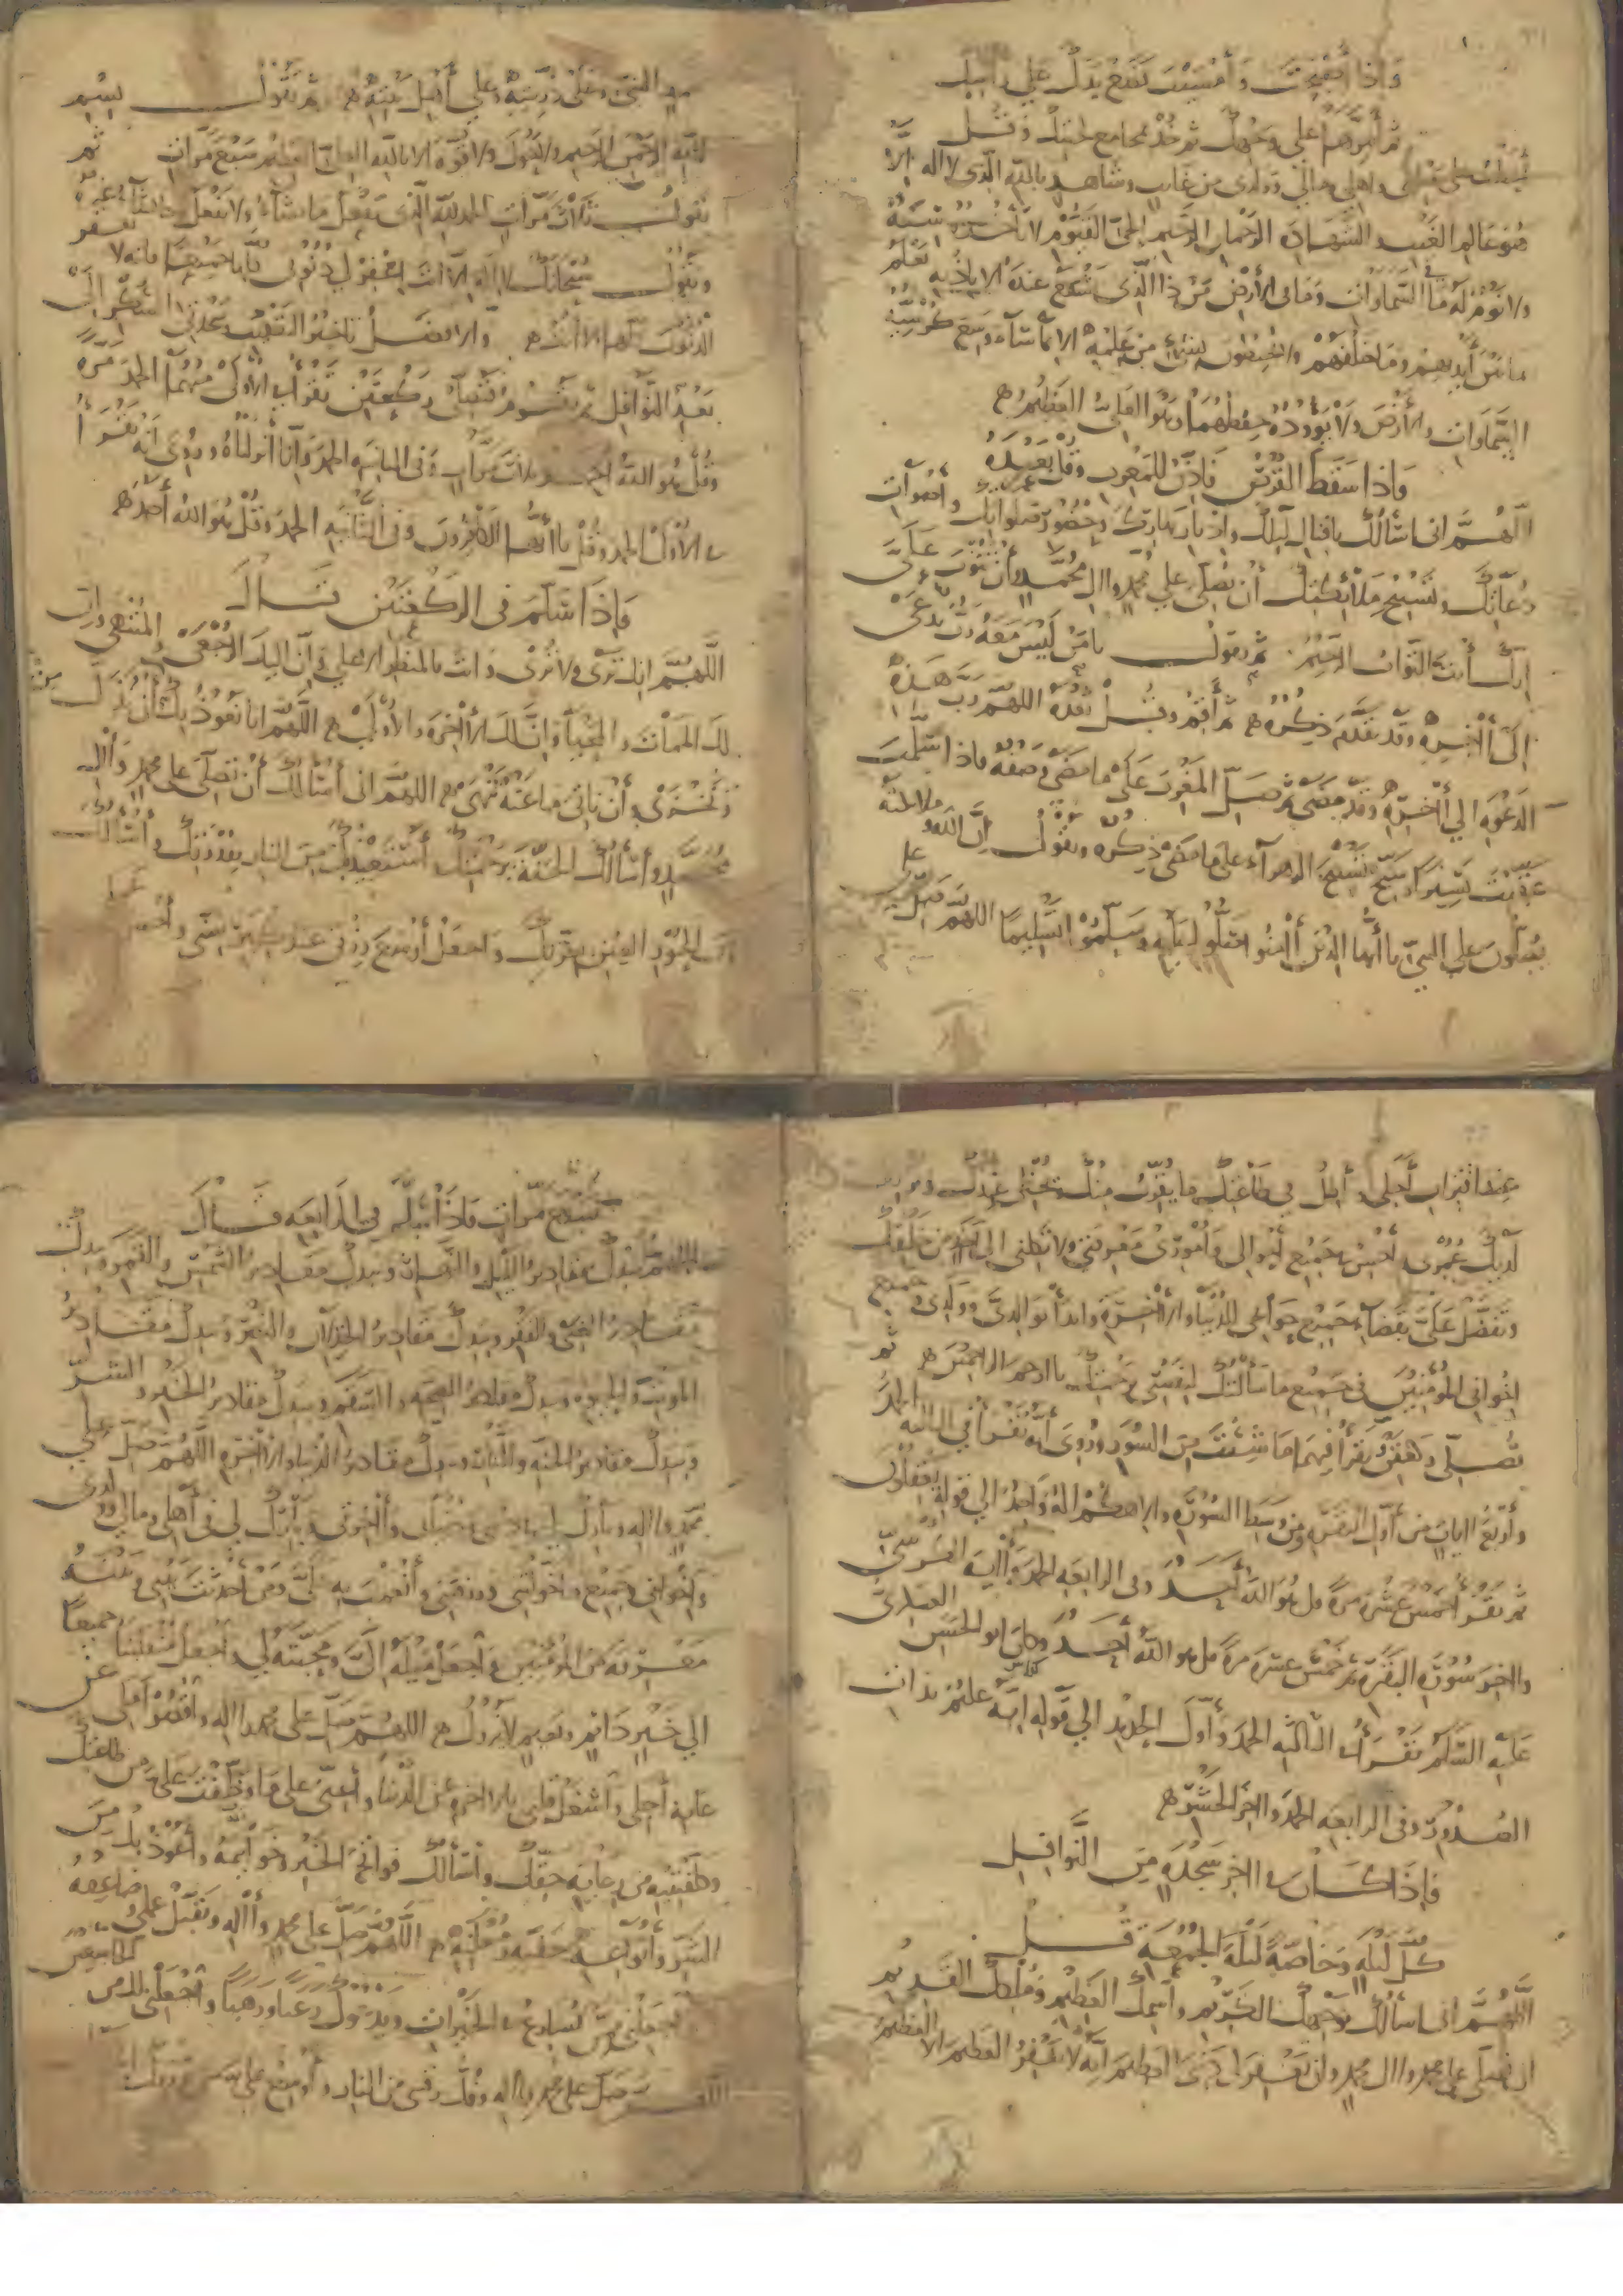 واذا اصبحت وأمسيت فضع يدك على رأسك
ثم أمرّها على وجهك ثم خذ بمجامع لحيتك وقل
أحطت على نفسى وأهلي ومالي وولدى من غايب وشاهد بالله الذى لا اله الا
هو عالم الغيب والشهادة الرحمان الرحيم الحي القيوم لا تأخذه سنة
ولا نوم له ما فى السماوات وما في الأرض من ذا الذى يشفع عنده الا باذنه يعلم
ما بين أيديهم وما خلفهم ولا يحيطون بشيء من علمه الا بما شاء وسع كرسيه
السماوات والأرض ولا يؤوده حفظهما وهو العلي العظيم
واذا سقط القرص فاذن للمغرب وقل بعده
اللهم انى اسألك باقبال ليلك وادبار نهارك وحضور صلواتك وأصوات
دعاتك وتسبيح ملائكتك أن تصلى على محمد وال محمد وأن تتوب علىّ
إنك أنت التواب الرحيم ثم تقول يا من ليس معه ربّ يدعى
الى أاخره وقد تقدم ذكره ثم أقم وقل بعده اللهم رب هذه
الدعوة الي أاخره وقد مضى ثم صلّ المغرب على ما مضى وصفه فاذا سلمت
عقبت يسيرا وسبح تسبيح الزهرآء على ما مضى ذكره وتقول إن الله وملائكته
يصلّون على النبيّ يا أيها الذين أامنوا صلّوا عليه وسلّموا تسليما اللهم صل على
محمد النبى وعلى ذريته وعلي أهل بيته ثم تقول بسم
الله الرحمن الرحيم ولا حول ولا قوة الا بالله العلي العظيم سبع مرات ثم
تقول ثلاث مرّات الحمد لله الذى يفعل ما يشآء ولا يفعل ما يشآء غيره
وتقول سبحانك لا اله الا أنت اغفر لي ذنوبى كلها جميعا فانه لا يغفر
الذنوب كلها الا أنت والافضل تاخير التعقيب وسجدتى الشكر الى
بعد النوافل ثم تقوم فتصلى ركعتين تقرأ فى الأولى منهما الحمد مرة
وقل هو الله احد ثلاث مرات وفى الثانيه الحمد وانا أنزلناه وروى انه تقرأ
فى الأولى الحمد وقل يا أيها الكافرون وفى الثانيه الحمد وقل هو الله أحد
واذا سلّم فى الركعتين قال
اللهم انك ترى ولا ترى وانت بالمنظر الاعلى وان اليك الرجعى والمنتهى وان
لك الممات والمحيا وان لك الأاخرة والأولى اللهم انا نعوذ بك أن نذل
ونخزى وأن ناتى ما عنه تنهى اللهم انى أسألك أن تصلى على محمد وأال
محمد وأسألك الجنة برحمتك وأستعيذ بك من النار بقدرتك وأسألك
من الحور العين بعزتك واجعل أوسع رزقى عند كبر سنى وأحسن عملي
عند اقتراب أجلى وأطل في طاعتك وما يقرّب منك ويحظى عندك
لديك عمرى وأحسن فى جميع أحوالى وأمورى معونتى ولا تكلنى الى أحد من خلقك
وتفضل علىّ بقضآء جميع حوآئجى للدنيا والأاخرة وابدأ بوالدىّ وولدى وجميع
اخوانى المؤمنين فى جميع ما سألتك لنفسى برحمتك يا ارحم الراحمين ثم
تصلي ركعتين تقرأ فيهما ما شئت من السور وروى أنه تقرأ في الثالثه الحمد
وأربع اايات من أول البقره ومن وسط السوره والاهكم اله واحد الي قوله يعقلون
ثم تقرأ خمس عشرة مرة قل هو الله أحد وفى الرابعه الحمد وأاية الكرسىّ
وااخر سورة البقرة ثم خمس عشره مرة قل هو الله أحد وكان ابو الحسن العسكرىّ
عليه السلم يقرأ فى الثالثه الحمد وأول الحديد الي قوله انه عليم بذات
الصدور وفى الرابعه الحمد وااخر الحشر
فاذا كان فى ااخر سجدة من النوافل
كل ليله وخاصّة ليلة الجمعة قل
اللهم انى اسألك بوجهك الكريم واسمك العظيم وملكك القديم
ان تصلي على محمد واال محمد وان تغفر لى ذنبى العظيم انه لا يغفر العظيم الا العظيم
سبع مرّات فاذا سلّم في الرابعه قال
اللهم بيدك مقادير الليل والنهار وبيدك مقادير الشمس والقمر وبيدك
مقادير الغنى والفقر وبيدك مقادير الخذلان والنصر وبيدك مقادير
الموت والحيوه وبيدك مقادير الصحه والسقم وبيدك مقادير الخير والشر
وبيدك مقادير الجنه والنار وبيدك مقادير الدنيا والأاخرة اللهم صل على
محمد واله وبارك لي فى دينى ودنياى وأاخرتى وبارك لي فى أهلى ومالى وولدى
واخوانى وجميع ما خوّلتنى ورزقتنى وأنعمت به علىّ ومن أحدثت بينى وبينه
معرفة من المؤمنين واجعل ميله الىّ ومحبته لي واجعل منقلبنا جميعا
الي خير دائم ونعيم لا يزول اللهم صل على محمد واله واقصر أملى عن
غاية أجلى واشغل قلبى بالاخرة عن الدنيا وأعنّى على ما وظّفت علىّ من طاعتك
وكلفتنيه من رعاية حقك وأسألك فواتح الخير وخواتمه وأعوذ بك من
الشرّ وأنواعه خفيّه ومعلنه اللهم صل على محمد وأاله وتقبّل عملى وضاعفه
واجعلنى ممن يسارع فى الخيرات ويدعوك رغبا ورهبا واجعلنى لك من الخاشعين
اللهم صل على محمد وااله وفك رقبتى من النار وأوسع على من رزقك